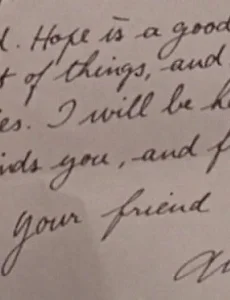 d. Hope is a good
t of things, and
es. I will be h
nds you, and f
Your friend